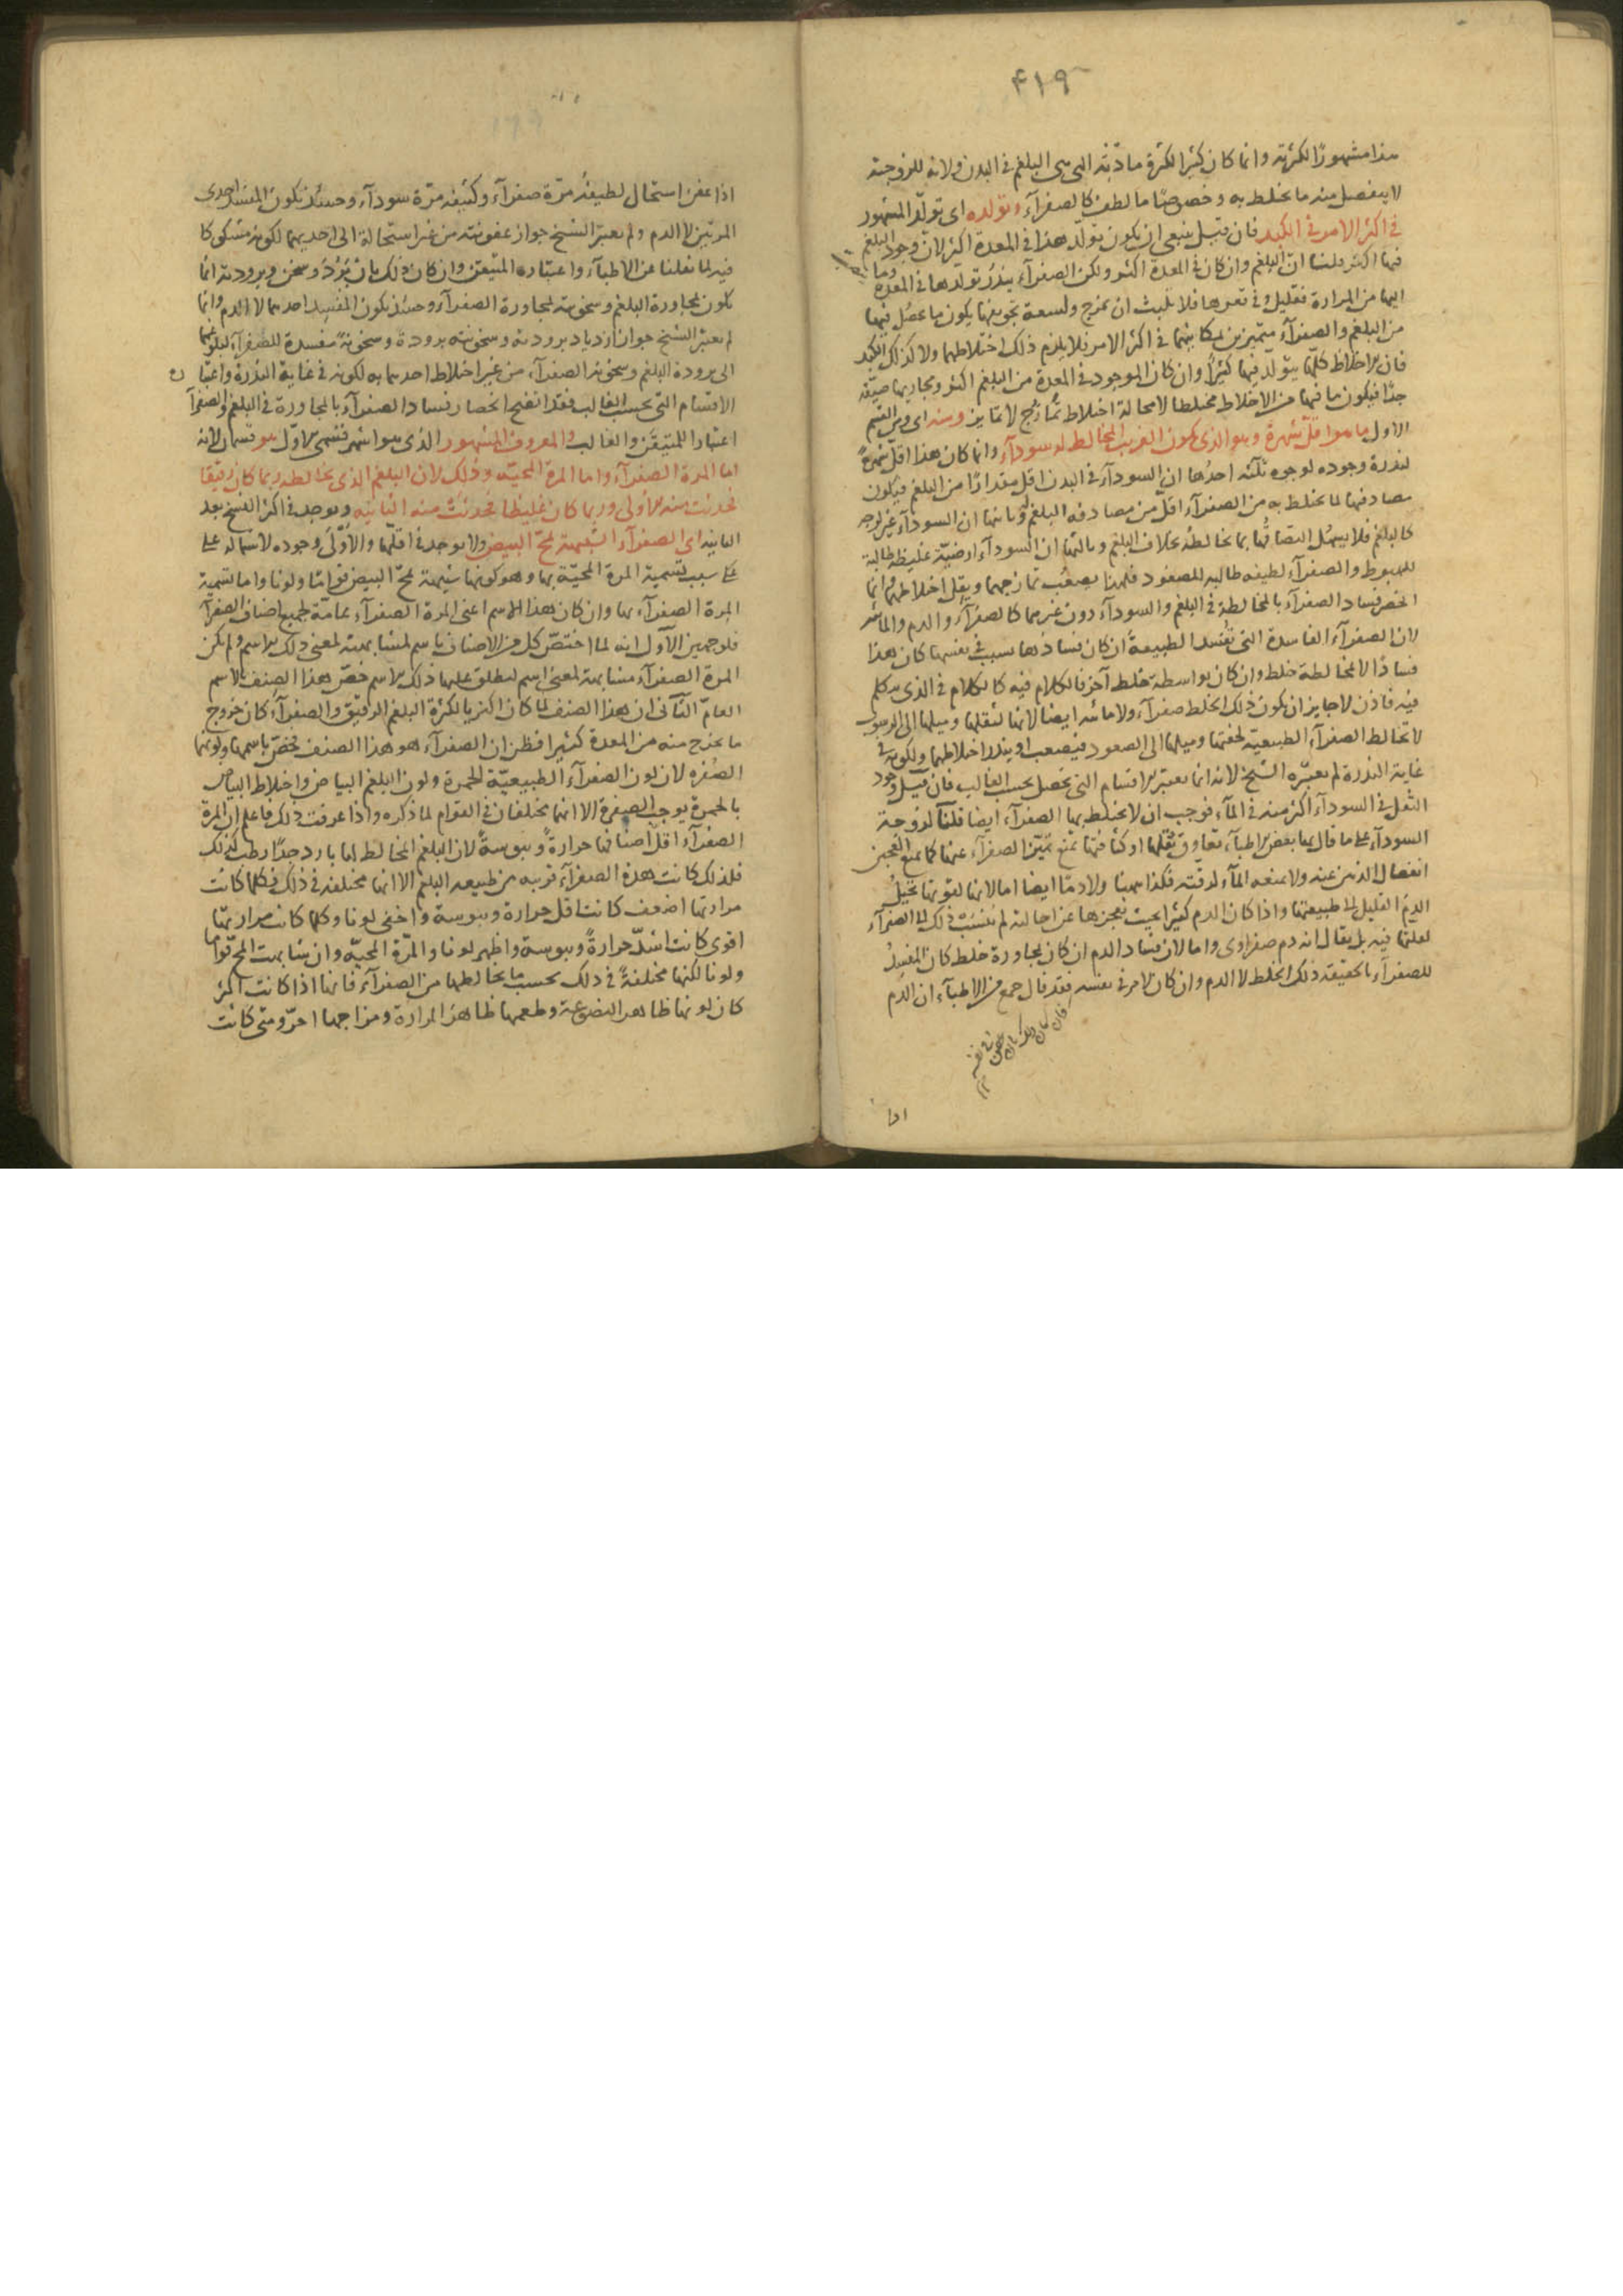 ۴۱۹
هذا مشهورًا لكثرته وانما كان كثيرا لكثرة مادّته التى هى البلغم فى البدن ولانه للزوجته
لا ينفصل عنه ما يختلط به وخصوصًا ما لطف كالصفرآء وتولده اى تولّد المشهور
فى اكثر الامر فى الكبد فان قيل ينبغى ان يكون تولد هذا فى المعدة اكثر لان وجود البلغم
فيها اكثر قلنا انّ البلغم وان كان فى المعدة اكثر ولكن الصفرآء يندر تولدها فى المعدة وما
اليها من المرارة فقليل وفى قعرها فلا تلبث ان تمزج ولسعة تجويفها يكون ما يحصل فيها
من البلغم والصفرآء متميزين بمكانيهما فى اكثر الامر فلا يلزم ذلك اختلاطهما ولا كذلك الكبد
فان الاخلاط كلّها يتولّد فيها كثيرًا وان كان الموجود فى المعدة من البلغم اكثر ومجاريها ضيّقه
جدًّا فيكون ما فيها من الاخلاط مختلطا لا محالة اختلاط تمازج لا تمايز ومنه اى ومن القسم
الاول ما هو اقلّ شهرةً وهو الذى يكون الغريب المخالط له سودآء وانما كان هذا اقلّ شهرةً
لندرة وجوده لوجوه ثلثه احدُها ان السودآء فى البدن اقل مقدارًا من البلغم فيكون
مصادفتها لما يختلط به من الصفرآء اقلّ من مصادفه البلغم وثانيها ان السودآء غير لزجه
كالبلغم فلا يسهُل التصاقُها بما تخالطه بخلاف البلغم وثالثها ان السودآء ارضيّة غليظه طالبة
للهبوط والصفرآء لطيفه طالبه للصعود فلهذا يصعُب تمازجهما ويقل اختلاطهما وانما
انحصر فساد الصفرآء بالمخالطة فى البلغم والسودآء دون غيرهما كالصفرآء والدم والمائيه
لان الصفرآء الفاسدة التى تفسد الطبيعةَ ان كان فسادُها بسبب فى نفسها كان هذا
فسادًا لا لمخالطة خلط وان كان بواسطة خلط آخر فالكلام فيه كالكلام فى الذى يتكلم
فيه فاذن لا جايز ان يكون ذلك الخلط صفرآء ولا مائيه ايضا لانها لثقلها وميلها الى الرسوب
لا تخالط الصفرآء الطبيعيّة لخفتها وميلها الى الصعود فيصعب او يندر اختلاطهما ولكونه فى
غاية الندرة لم يعتبره الشيخ لانه انما يعتبر الاقسام التى تحصل بحسب الغالب فان قيل وجود
الثقل فى السودآء اكثر منه فى المآء فوجب ان لا يختلط بها الصفرآء ايضا قلنا لزوجة
السودآء على ما قال بها بعض الاطبآء تقاوق ثقلها او كثافتها تمنع تميّز الصفرآء عنها كما يمنع العجين
انفصال الدهن عنه ولا يمنعه المآء لرقته فكذا ههنا ولا دمًا ايضا اما لانها لقوتها تحيلُ
الدمَ القليل الى طبيعتها واذا كان الدم كثيرا بحيث يعجزها عن احالته لم ينسب ذلك الى الصفرآء
لغلبتها فيه بل يقال انه دم صفراوى واما لان فساد الدم ان كان بمجاورة خلط كان المفسدُ
للصفرآء بالحقيقه ذلك الخلط لا الدم وان كان لامر فى نفسه فقد قال جمع من الاطبآء ان الدم
فان كان ذلك بان عفن فى نفسه
اذا
اذا عفن استحال لطيفُه مرّة صفرآء وكثيفه مرّة سودآء وحينئذ يكون المفسد احدى
المرتين لا الدم ولم يعتبر الشيخ جواز عفونته من غير استحالة الى احديهما لكونه مشكوكا
فيه لما نقلنا عن الاطبآء واعتباره المتيقن وان كان ذلك بان بَرُدَ وسخن وبرودته انما
يكون لمجاورة البلغم وسخونته لمجاورة الصفرآء وحينئذ يكون المفسد احدهما لا الدم وانما
لم يعتبر الشيخ جواز ازدياد برودته وسخونته برودة وسخونة مفسدة للصفرآء لبلوغهما
الى برودة البلغم وسخونة الصفرآء من غير اختلاط احدهما به لكونه فى غاية الندرة واعتبار
الاقسام التى بحسب الغالب فقد اتضح انحصار فساد الصفرآء بالمجاورة فى البلغم والصفرآء
اعتبارا للمتيقن والغالب والمعروف المشهور الذى هو اشهر قسمى الاول هو قسمان لانه
اما المرة الصفرآء واما المرة المحيّه وذلك لان البلغم الذى يخالطه ربما كان رقيقا
فحدثت منه الاولى وربما كان غليظا فحدثت منه الثانيه ويوجد فى اكثر النسخ بعد
الثانيه اى الصفرآء الشبيهة بمحّ البيض ولا يوجد فى اقلّها والأوّلى وجوده لاشتماله على
على سبب تسمية المرة المحيّة بها وهو كونها شبيهة بمحّ البيض قوامًا ولونا واما تسمية
المرة الصفرآء بها وان كان هذا الاسم اعنى المرة الصفرآء عامّة لجميع اصناف الصفرآء
فلوجهين الاول انه لما اختصّ كل من الاصناف باسم لمشابهته لمعنى ذلك الاسم ولم يكن
المرة الصفرآء مشابهة لمعنى اسم ليطلق عليها ذلك الاسم خصّ هذا الصنف بالاسم
العامّ الثانى ان هذا الصنف لما كان اكثريا لكثرة البلغم الرقيق والصفرآء كان خروج
ما يخرج منه من المعدة كثيرا فظن ان الصفرآء هو هذا الصنف فخصّ باسمها ولونها
الصُفره لان لون الصفرآء الطبيعيّة الحمرة ولون البلغم البياض واختلاط البياض
بالحمرة يوجب الصفرة الا انهما مختلفان فى القوام لما ذكره واذا عرفت ذلك فاعلم ان المرة
الصفرآء اقلّ اصنافها حرارةً ويبوسةً لان البلغم المخالط لها بارد جدًّا رطب كذلك
فلذلك كانت هذه الصفرآء قريبه من طبيعه البلغم الا انها مختلفه فى ذلك فكلما كانت
مرارتها اضعف كانت اقل حرارة ويبوسة واخفى لونا وكلما كانت مرارتها
اقوى كانت اشدّ حرارةً ويبوسة واظهر لونا والمرّة المحيّه وان شابهت المحّ قوامًا
ولونا لكنها مختلفةً فى ذلك بحسب ما يخالطها من الصفرآء فانها اذا كانت اكثر
كان لونها ظاهر النصوعة وطعمها ظاهرَ المرارة ومزاجها احرّ ومتى كانت